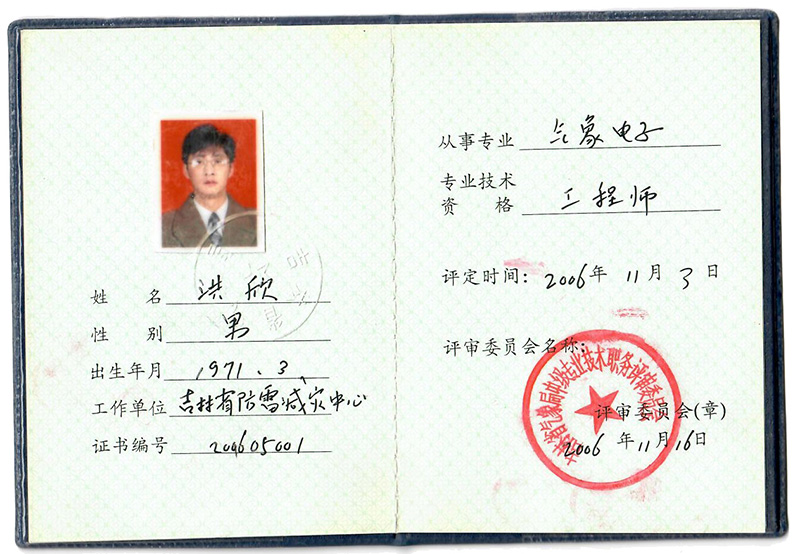 姓 名 洪欣
性 别 男
出生年月 1971.3
工作单位 吉林省防雷减灾中心
证书编号 200605001
从事专业 气象电子
专业技术
资 格 工程师
评定时间: 2006年 11月 3日
评审委员会名称:
吉林省气象局中级专业技术职务评审委员会
评审委员会(章)
2006年11月16日